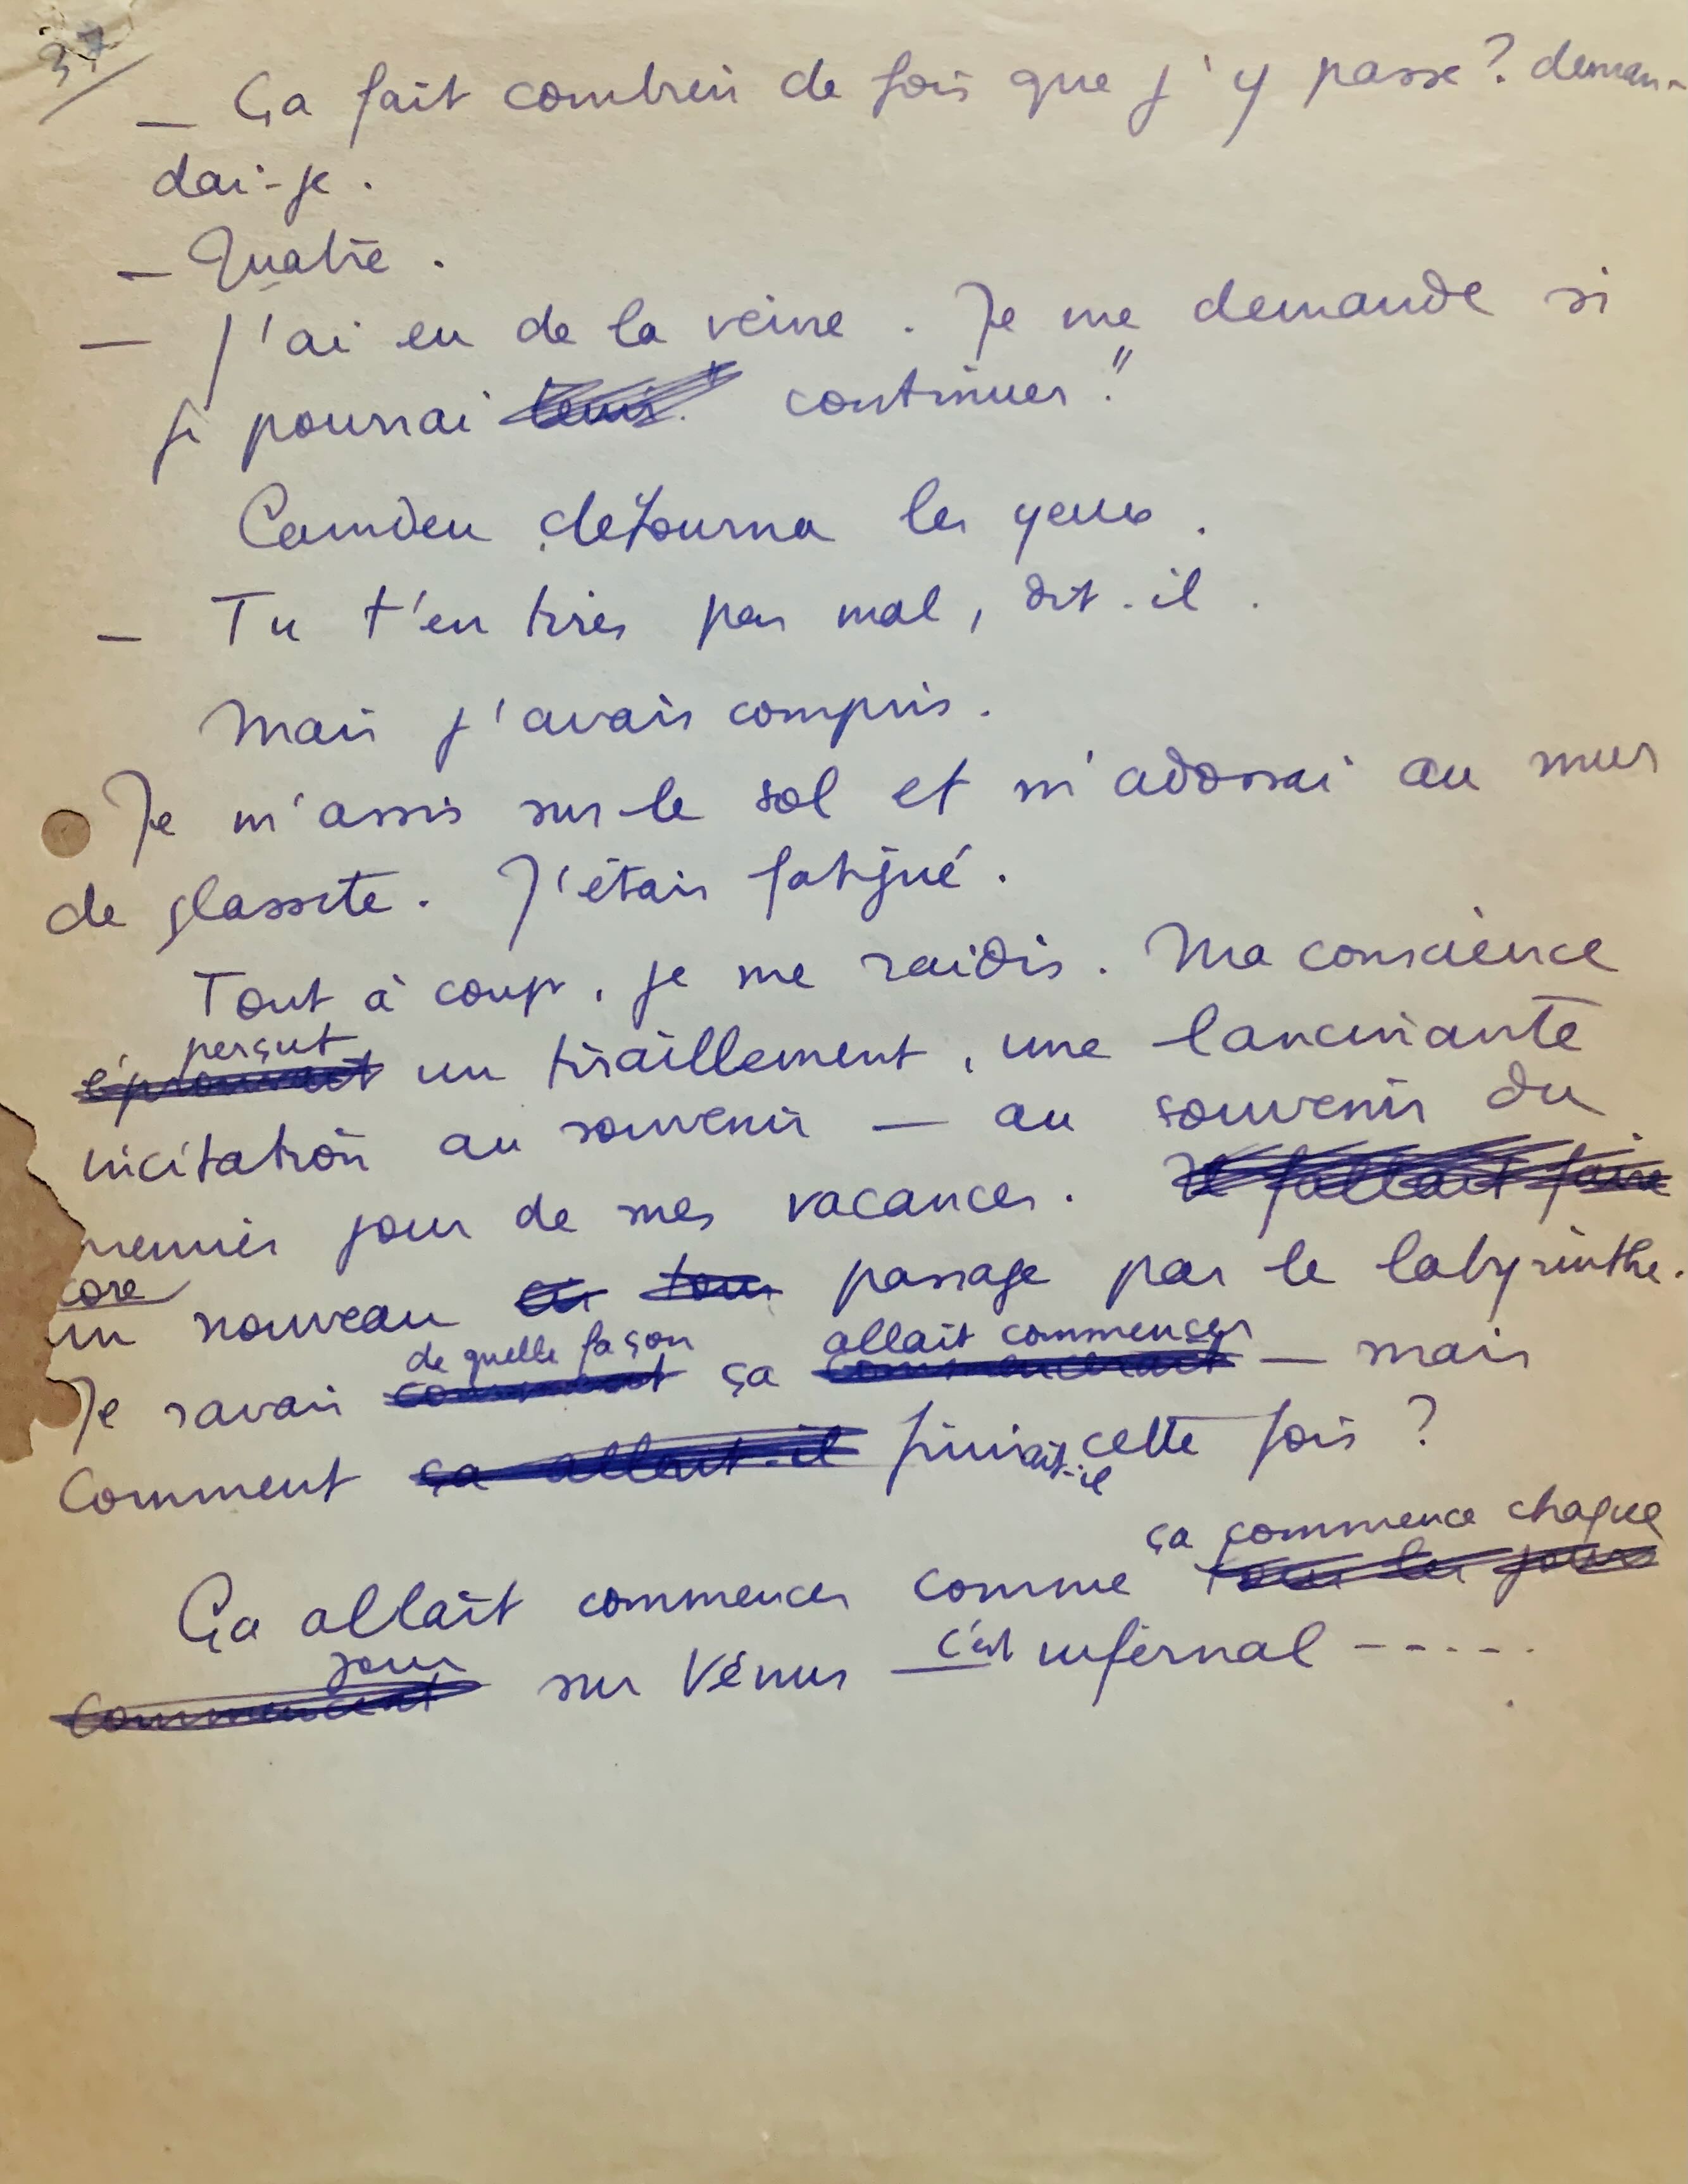 37
— Ça fait combien de fois que j'y passe ? deman-
dai-je.
— Quatre.
— J'ai eu de la veine. Je me demande si
je pourrai tenir." continuer."
Camden détourna les yeux.
— Tu t'en tires pas mal, dit-il.
Mais j'avais compris.
Je m'assis sur le sol et m'adossai au mur
de glassite. J'étais fatigué.
Tout à coup, je me raidis. Ma conscience
perçut
éprouvait un tiraillement, une lancinante
incitation au souvenir — au souvenir du
premier jour de mes vacances. Il fallait faire
core
un nouveau passage par le labyrinthe.
de quelle façon allait commencer
Je savais comment ça commencerait — mais
Comment ça allait-il finirait-il cette fois ?
ça commence chaque
Ça allait commencer comme tous les jours
jour c'est
commencent sur Vénus — infernal -----